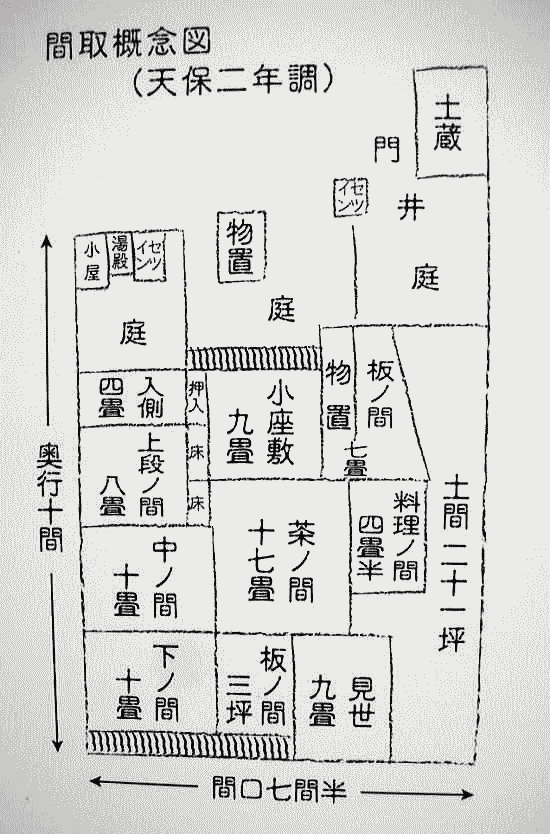 間取概念図
(天保二年調)
土蔵
門
セツ
イン
井
庭
物置
庭
小屋
湯殿
セツ
イン
庭
入側
四畳
押入
小座敷
九畳
物置
板ノ間
七畳
上段ノ間
八畳
床
床
茶ノ間
十七畳
料理ノ間
四畳半
土間二十一坪
中ノ間
十畳
下ノ間
十畳
板ノ間
三坪
見世
九畳
奥行十間
間口七間半